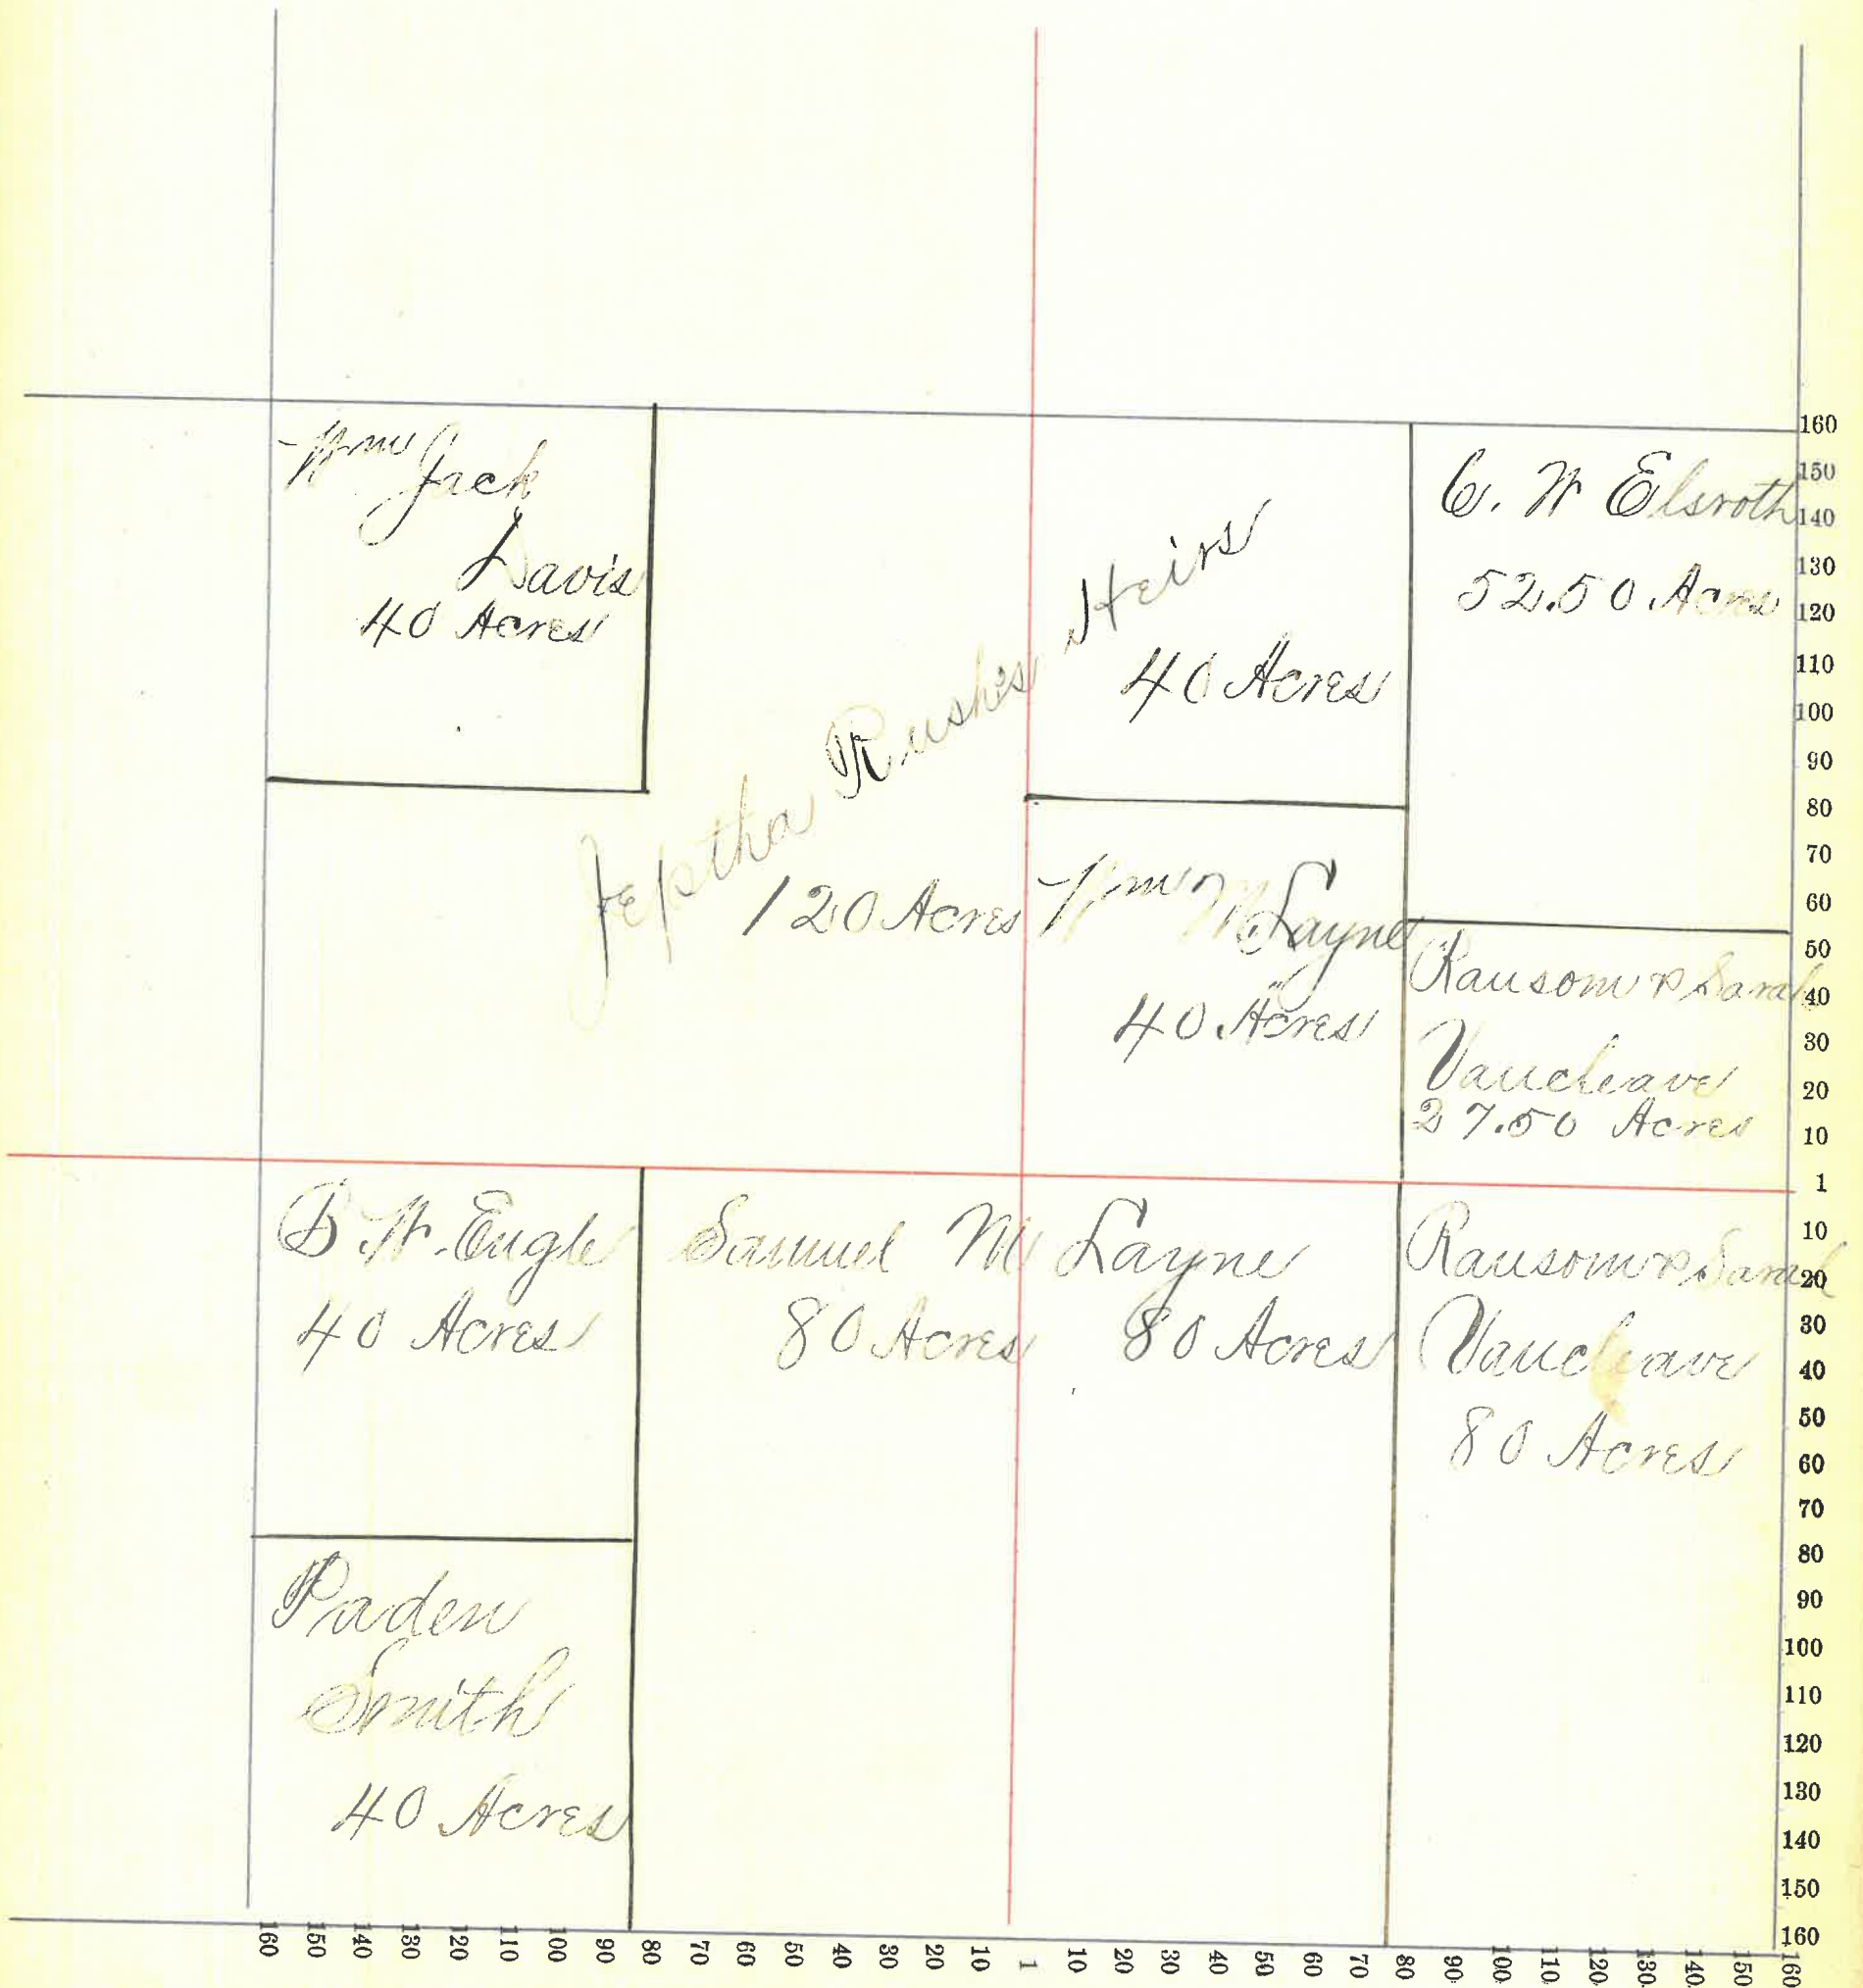 Wm Jack
Davis
40 Acres
Jeptha Rushes Heirs
40 Acres
120 Acres
C. W Elsroth
52.50 Acres
Wm M Layne
40 Acres
Ransom & Sarah
Vancleave
27.50 Acres
B. W. Engle
40 Acres
Samuel M Layne
80 Acres 80 Acres
Ransom & Sarah
Vancleave
80 Acres
Paden
Smith
40 Acres
160
150
140
130
120
110
100
90
80
70
60
50
40
30
20
10
1
10
20
30
40
50
60
70
80
90
100
110
120
130
140
150
160
160 150 140 130 120 110 100 90 80 70 60 50 40 30 20 10 1 10 20 30 40 50 60 70 80 90 100 110 120 130 140 150 160